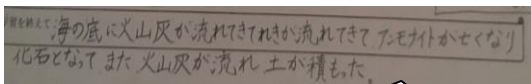 習を終えて 海の底に火山灰が流れてきてれきが流れてきてアンモナイトが亡くなり
化石となって また 火山灰が流れ 土が積もった。